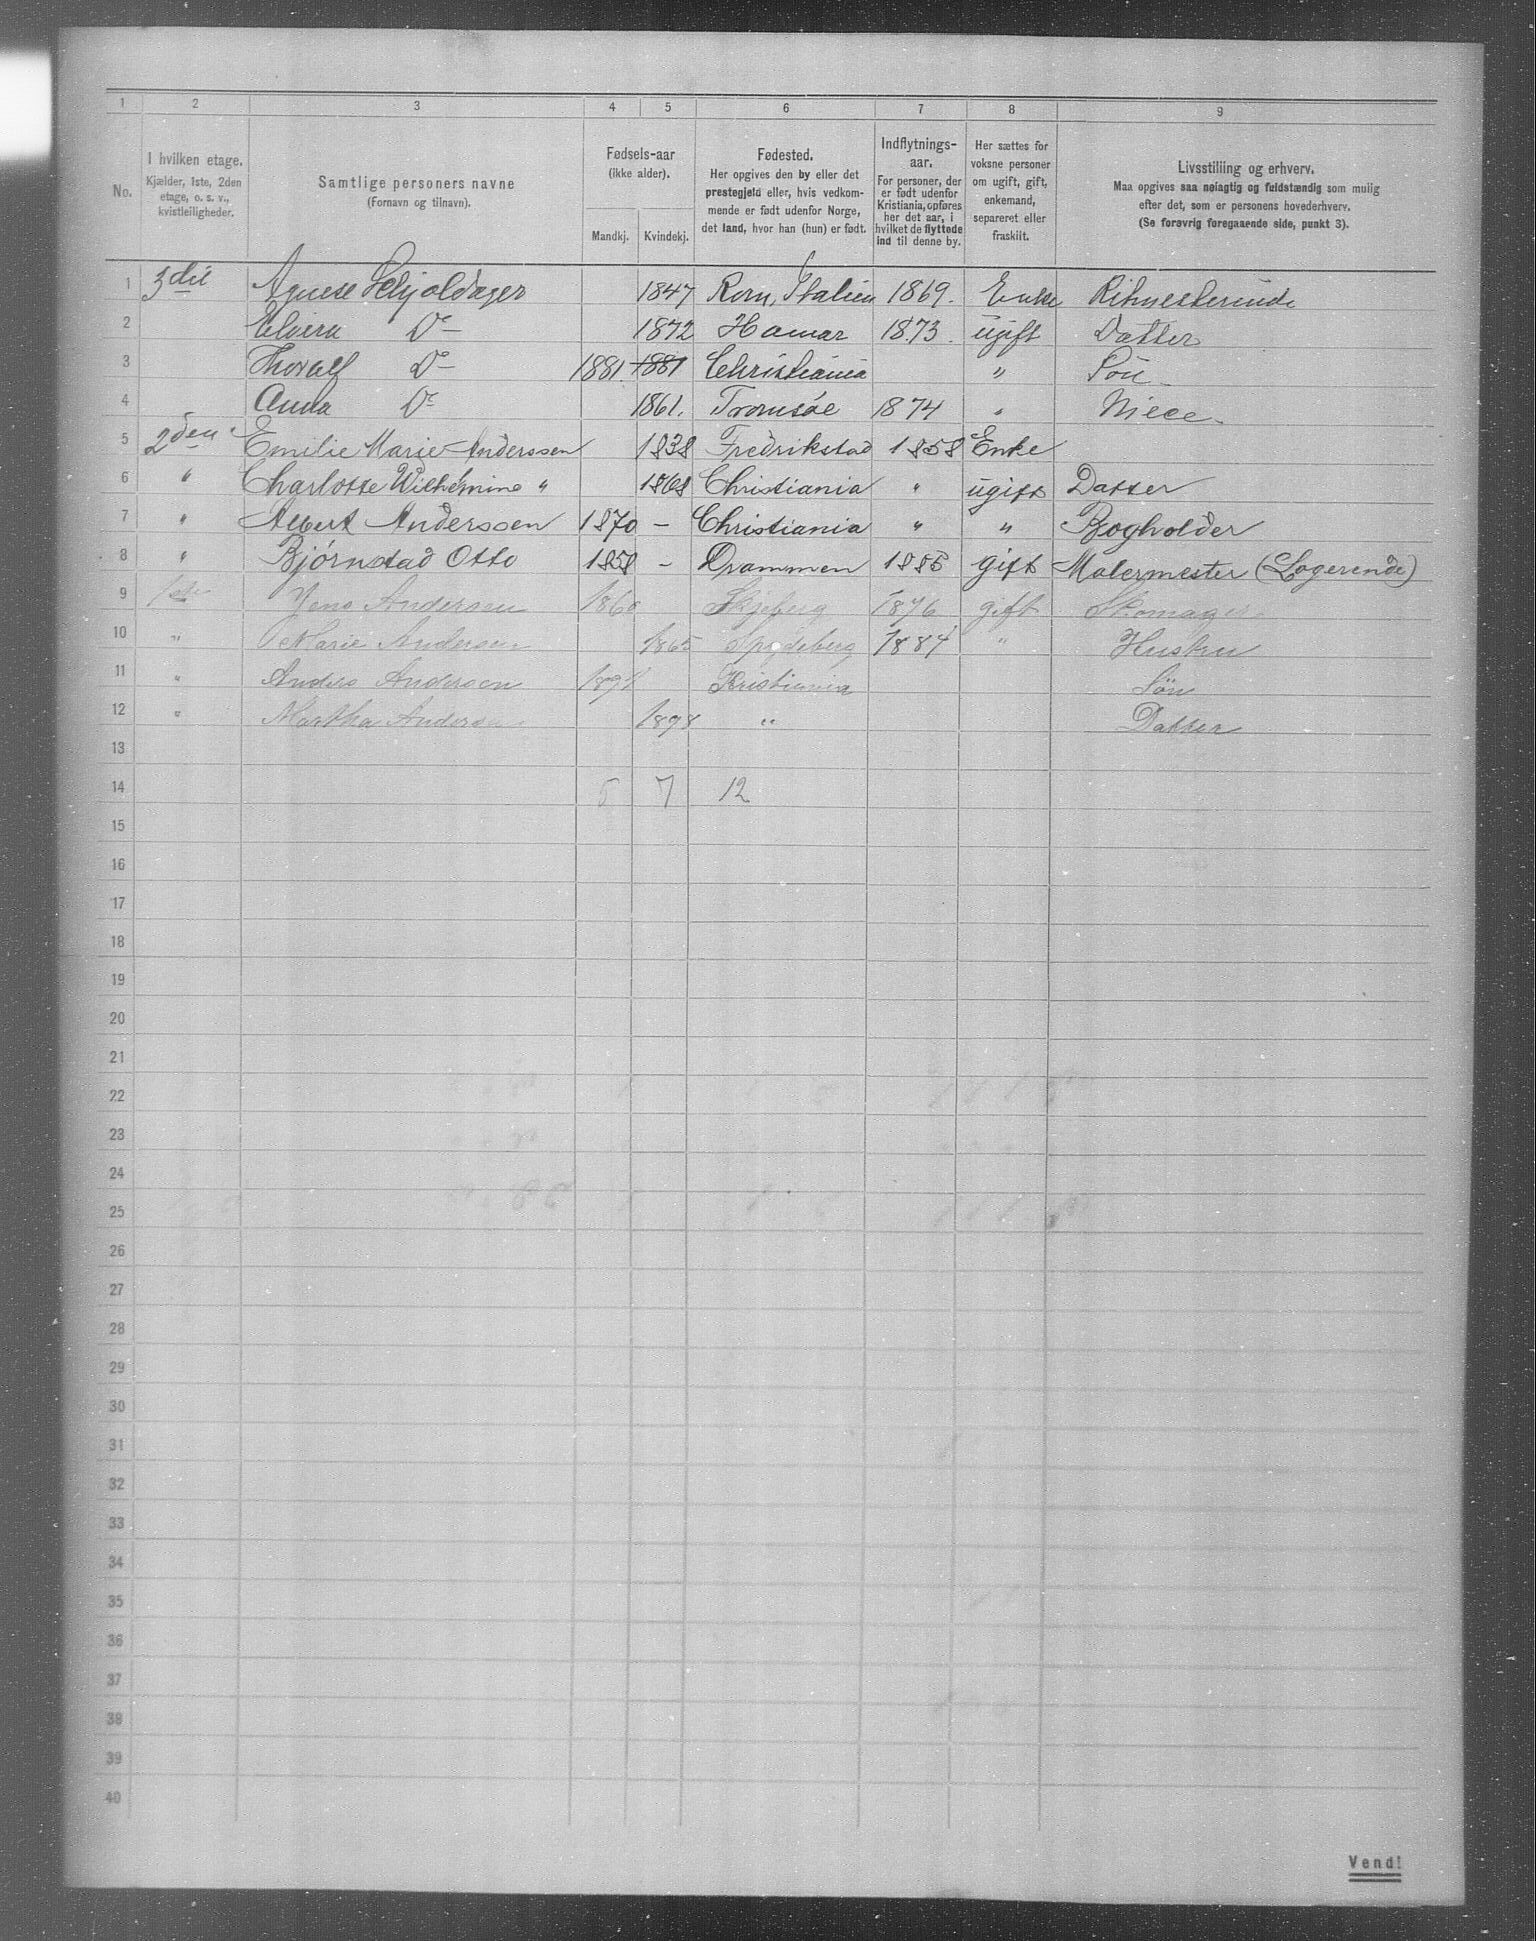 1 2 3 4 5 6 7 8 9
No.
I hvilken etage.
Kjælder, 1ste, 2den
etage, o. s. v.,
kvistleiligheder.
Samtlige personers navne
(Fornavn og tilnavn).
Fødsels-aar
(ikke alder).
Mandkj. Kvindekj.
Fødested.
Her opgives den by eller det
prestegjeld eller, hvis vedkom-
mende er født udenfor Norge,
det land, hvor han (hun) er født.
Indflytnings-
aar.
For personer, der
er født udenfor
Kristiania, opføres
her det aar, i
hvilket de flyttede
ind til denne by.
Her sættes for
voksne personer
om ugift, gift,
enkemand,
separeret eller
fraskilt.
Livsstilling og erhverv.
Maa opgives saa nøiagtig og fuldstændig som mulig
efter det, som er personens hovederhverv.
(Se forøvrig foregaaende side, punkt 3).
1 3die Agnese Schjoldager 1847 Rom, Italien 1869. Enke
2 Elvira Do 1872 Hamar 1873. ugift Datter
3 Thoralf Do 1881 1881 Christiania " Søn
4 Anna Do 1861. Tromsøe 1874 " Niece
5 2den Emilie Marie Anderssen 1838 Fredrikstad 1858 Enke
6 " Charlotte Wilhelmine " 1868 Christiania " ugift Datter
7 " Albert Anderssen 1870 - Christiania " " Bogholder
8 " Bjørnstad Otto 1858 - Drammen 1885 gift Malermester (Logerende)
9 1ste Jens Andersen 1860 Skjeberg 1876 gift Skomager
10 " Marie Andersen 1865 Spydeberg 1884 " Hustru
11 " Anders Andersen 1891 Kristiania Søn
12 " Martha Andersen 1898 " Datter
13
14 5 7 12
15
16
17
18
19
20
21
22
23
24
25
26
27
28
29
30
31
32
33
34
35
36
37
38
39
40
Vend!